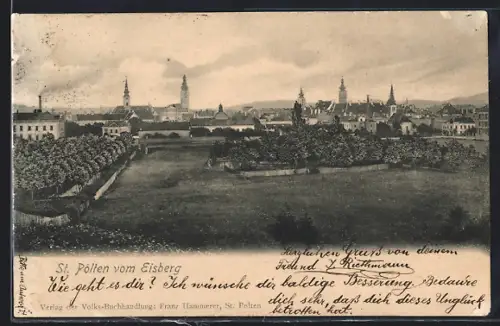 St. Pölten vom Eisberg
Herzlichen Gruß von deinem
Freund J. Riethmann
Wie geht es dir? Ich wünsche dir baldige Besserung. Bedaure
dich sehr, daß dich dieses Unglück
betroffen hat.
Verlag der Volks-Buchhandlung: Franz Hammerer, St. Pölten